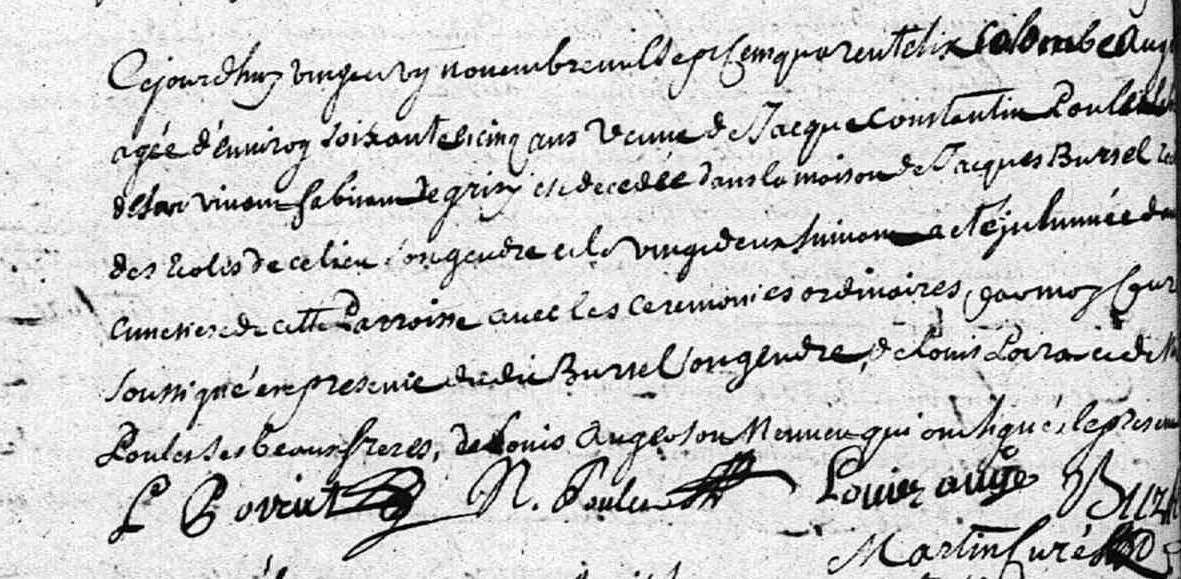 Cejourdhuy vingt un novembre mil sept cent quarente dix Colombe Auge
agée d'environ soixante cinq ans veuve de Jacque Constentin Poulet
de son vivant habitant de grisy est decedée dans la maison de Jacques Bursel
des Ecoles de ce lieu son gendre et le vingt deux suivant a eté jnhumée dan
cimetiere de cette Parroisse avec les ceremonies ordinaires, par moy Curé
soussigné en presence dudit Bursel son gendre, de Louis et de
Poulet ses beaux freres, de Louis Auge son Neuveu qui ont signés le present
N. Poulet Louis auge
Martin Curé